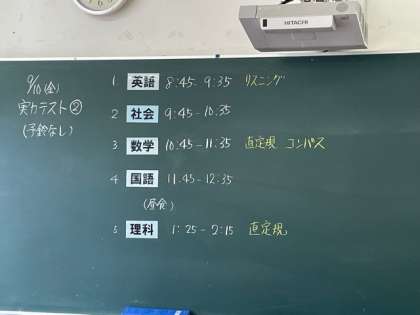 HITACHI
9/10(金)
実力テスト②
(予鈴なし)
1 英語 8:45-9:35 リスニング
2 社会 9:45-10:35
3 数学 10:45-11:35 直定規 コンパス
4 国語 11:45-12:35
(昼食)
5 理科 1:25-2:15 直定規